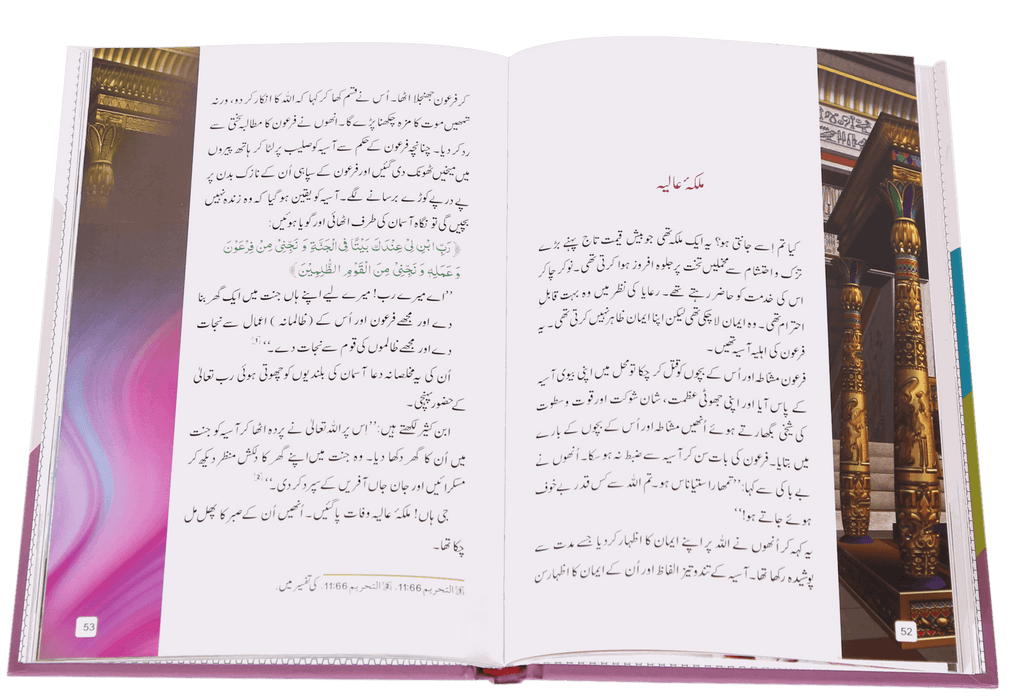 ملکۂ عالیہ
کیا تم اِسے جانتی ہو؟ یہ ایک ملکہ تھی جو بیش قیمت تاج پہنے بڑے
تزک و احتشام سے مخملیں تخت پر جلوہ افروز ہوا کرتی تھی۔ نوکر چاکر
اس کی خدمت کو حاضر رہتے تھے۔ رعایا کی نظر میں وہ بہت قابل
احترام تھی۔ وہ ایمان لا چکی تھی لیکن اپنا ایمان ظاہر نہیں کرتی تھی۔ یہ
فرعون کی اہلیہ آسیہ تھیں۔
فرعون مشاطہ اور اُس کے بچوں کو قتل کر چکا تو محل میں اپنی بیوی آسیہ
کے پاس آیا اور اپنی جھوٹی عظمت، شان شوکت اور قوت و سطوت
کی شیخی بگھارتے ہوئے اُنھیں مشاطہ اور اُس کے بچوں کے بارے
میں بتایا۔ فرعون کی بات سن کر آسیہ سے ضبط نہ ہو سکا۔ اُنھوں نے
بے باکی سے کہا: ’’تمھارا ستیاناس ہو۔ تم اللہ سے کس قدر بے خوف
ہوئے جاتے ہو!‘‘
یہ کہہ کر اُنھوں نے اللہ پر اپنے ایمان کا اظہار کر دیا جسے مدت سے
پوشیدہ رکھا تھا۔ آسیہ کے تند و تیز الفاظ اور اُن کے ایمان کا اظہار سن
52
کر فرعون جھنجلا اٹھا۔ اُس نے قسم کھا کر کہا کہ اللہ کا انکار کر دو، ورنہ
تمھیں موت کا مزہ چکھنا پڑے گا۔ انھوں نے فرعون کا مطالبہ سختی سے
رد کر دیا۔ چنانچہ فرعون کے حکم سے آسیہ کو صلیب پر لٹا کر ہاتھ پیروں
میں میخیں ٹھونک دی گئیں اور فرعون کے سپاہی اُن کے نازک بدن پر
پے در پے کوڑے برسانے لگے۔ آسیہ کو یقین ہو گیا کہ وہ زندہ نہیں
بچیں گی تو نگاہ آسمان کی طرف اٹھائی اور گویا ہوئیں:
﴿رَبِّ ابْنِ لِیْ عِنْدَكَ بَیْتًا فِی الْجَنَّةِ وَ نَجِّنِیْ مِنْ فِرْعَوْنَ
وَ عَمَلِهٖ وَ نَجِّنِیْ مِنَ الْقَوْمِ الظّٰلِمِیْنَ﴾
’’اے میرے رب! میرے لیے اپنے ہاں جنت میں ایک گھر بنا
دے اور مجھے فرعون اور اُس کے (ظالمانہ) اعمال سے نجات
دے اور مجھے ظالموں کی قوم سے نجات دے۔‘‘
اُن کی یہ مخلصانہ دعا آسمان کی بلندیوں کو چھوتی ہوئی رب تعالیٰ
کے حضور پہنچی۔
ابن کثیر لکھتے ہیں: ’’اِس پر اللہ تعالیٰ نے پردہ اٹھا کر آسیہ کو جنت
میں اُن کا گھر دکھا دیا۔ وہ جنت میں اپنے گھر کا دلکش منظر دیکھ کر
مسکرائیں اور جان جاں آفریں کے سپرد کر دی۔‘‘
جی ہاں! ملکۂ عالیہ وفات پا گئیں۔ اُنھیں اُن کے صبر کا پھل مل
چکا تھا۔
التحریم 11:66. التحریم 11:66، کی تفسیر میں.
53